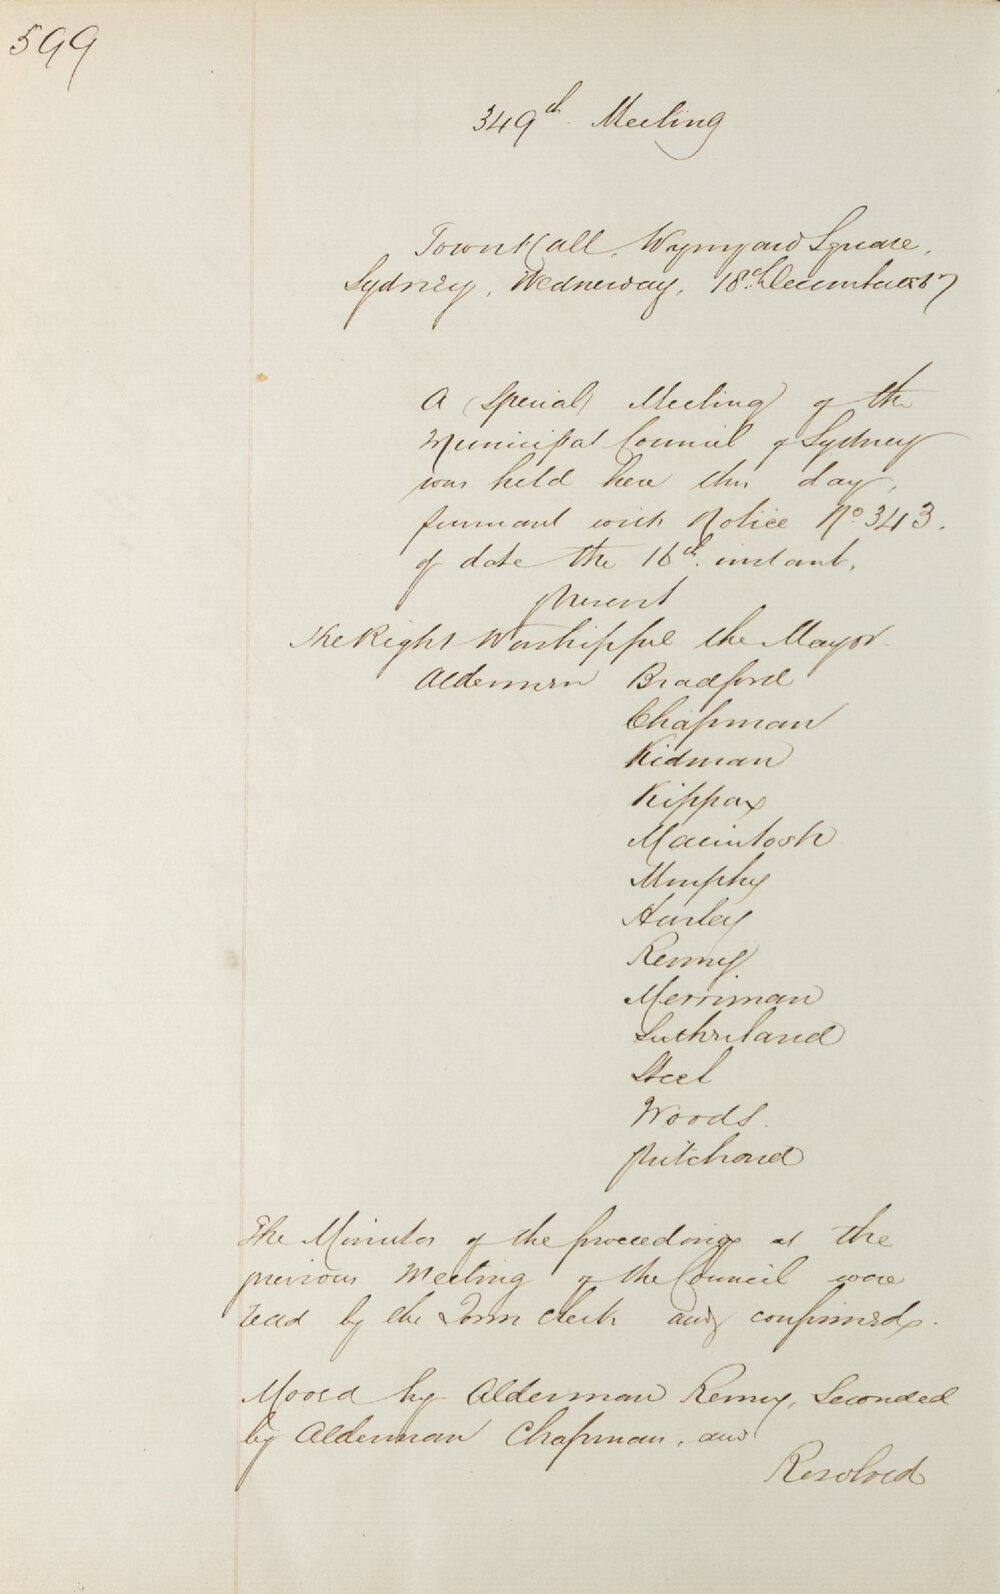 599
349th. Meeting
Town Hall, Wynyard Square,
Sydney, Wednesday, 18th. December 1867
A (Special) Meeting of the
Municipal Council of Sydney
was held here this day,
pursuant with Notice No. 343.
of date the 16th. instant,
present
The Right Worshipful the Mayor.
Aldermen Bradford
Chapman
Kidman
Kippax
Macintosh
Murphy
Hurley
Renny
Merriman
Sutherland
Steel
Woods.
Pritchard
The Minutes of the proceedings at the
previous Meeting of the Council were
read by the Town Clerk and confirmed.
Moved by Alderman Renny, Seconded
by Alderman Chapman, and
Resolved